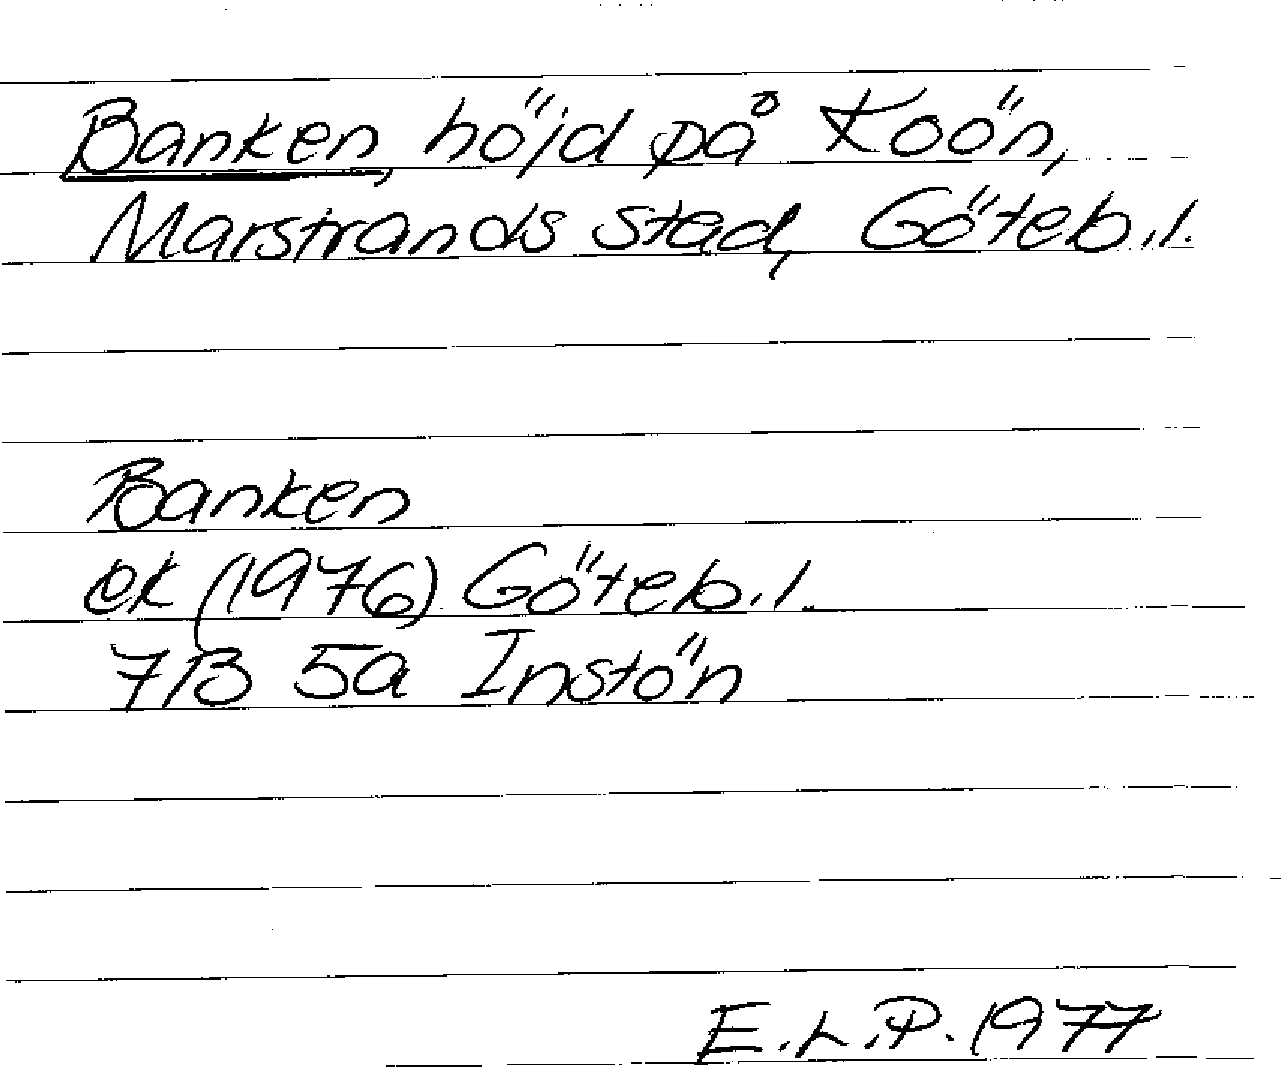 Banken, höjd på Koön,
Marstrands stad, Göteb.l.
Banken
ek (1976) Göteb.l.
7B 5a Instön
E.L.P. 1977